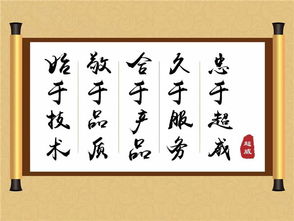 始于技术
敬于品质
合于产品
久于服务
忠于超威
超威